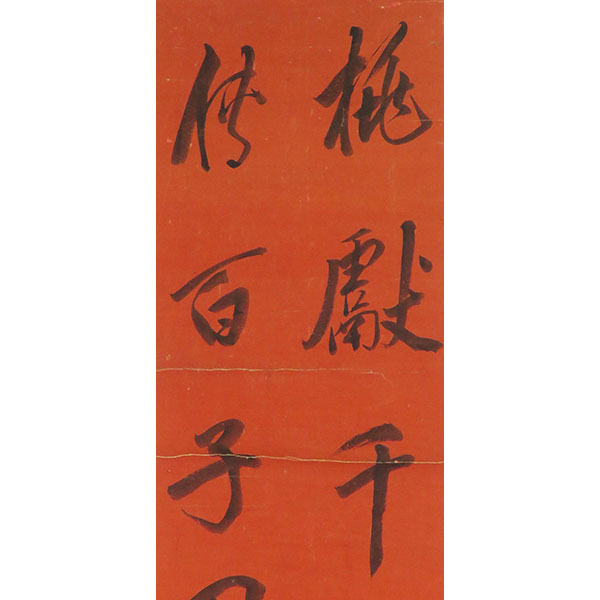 桃獻千
傳百子